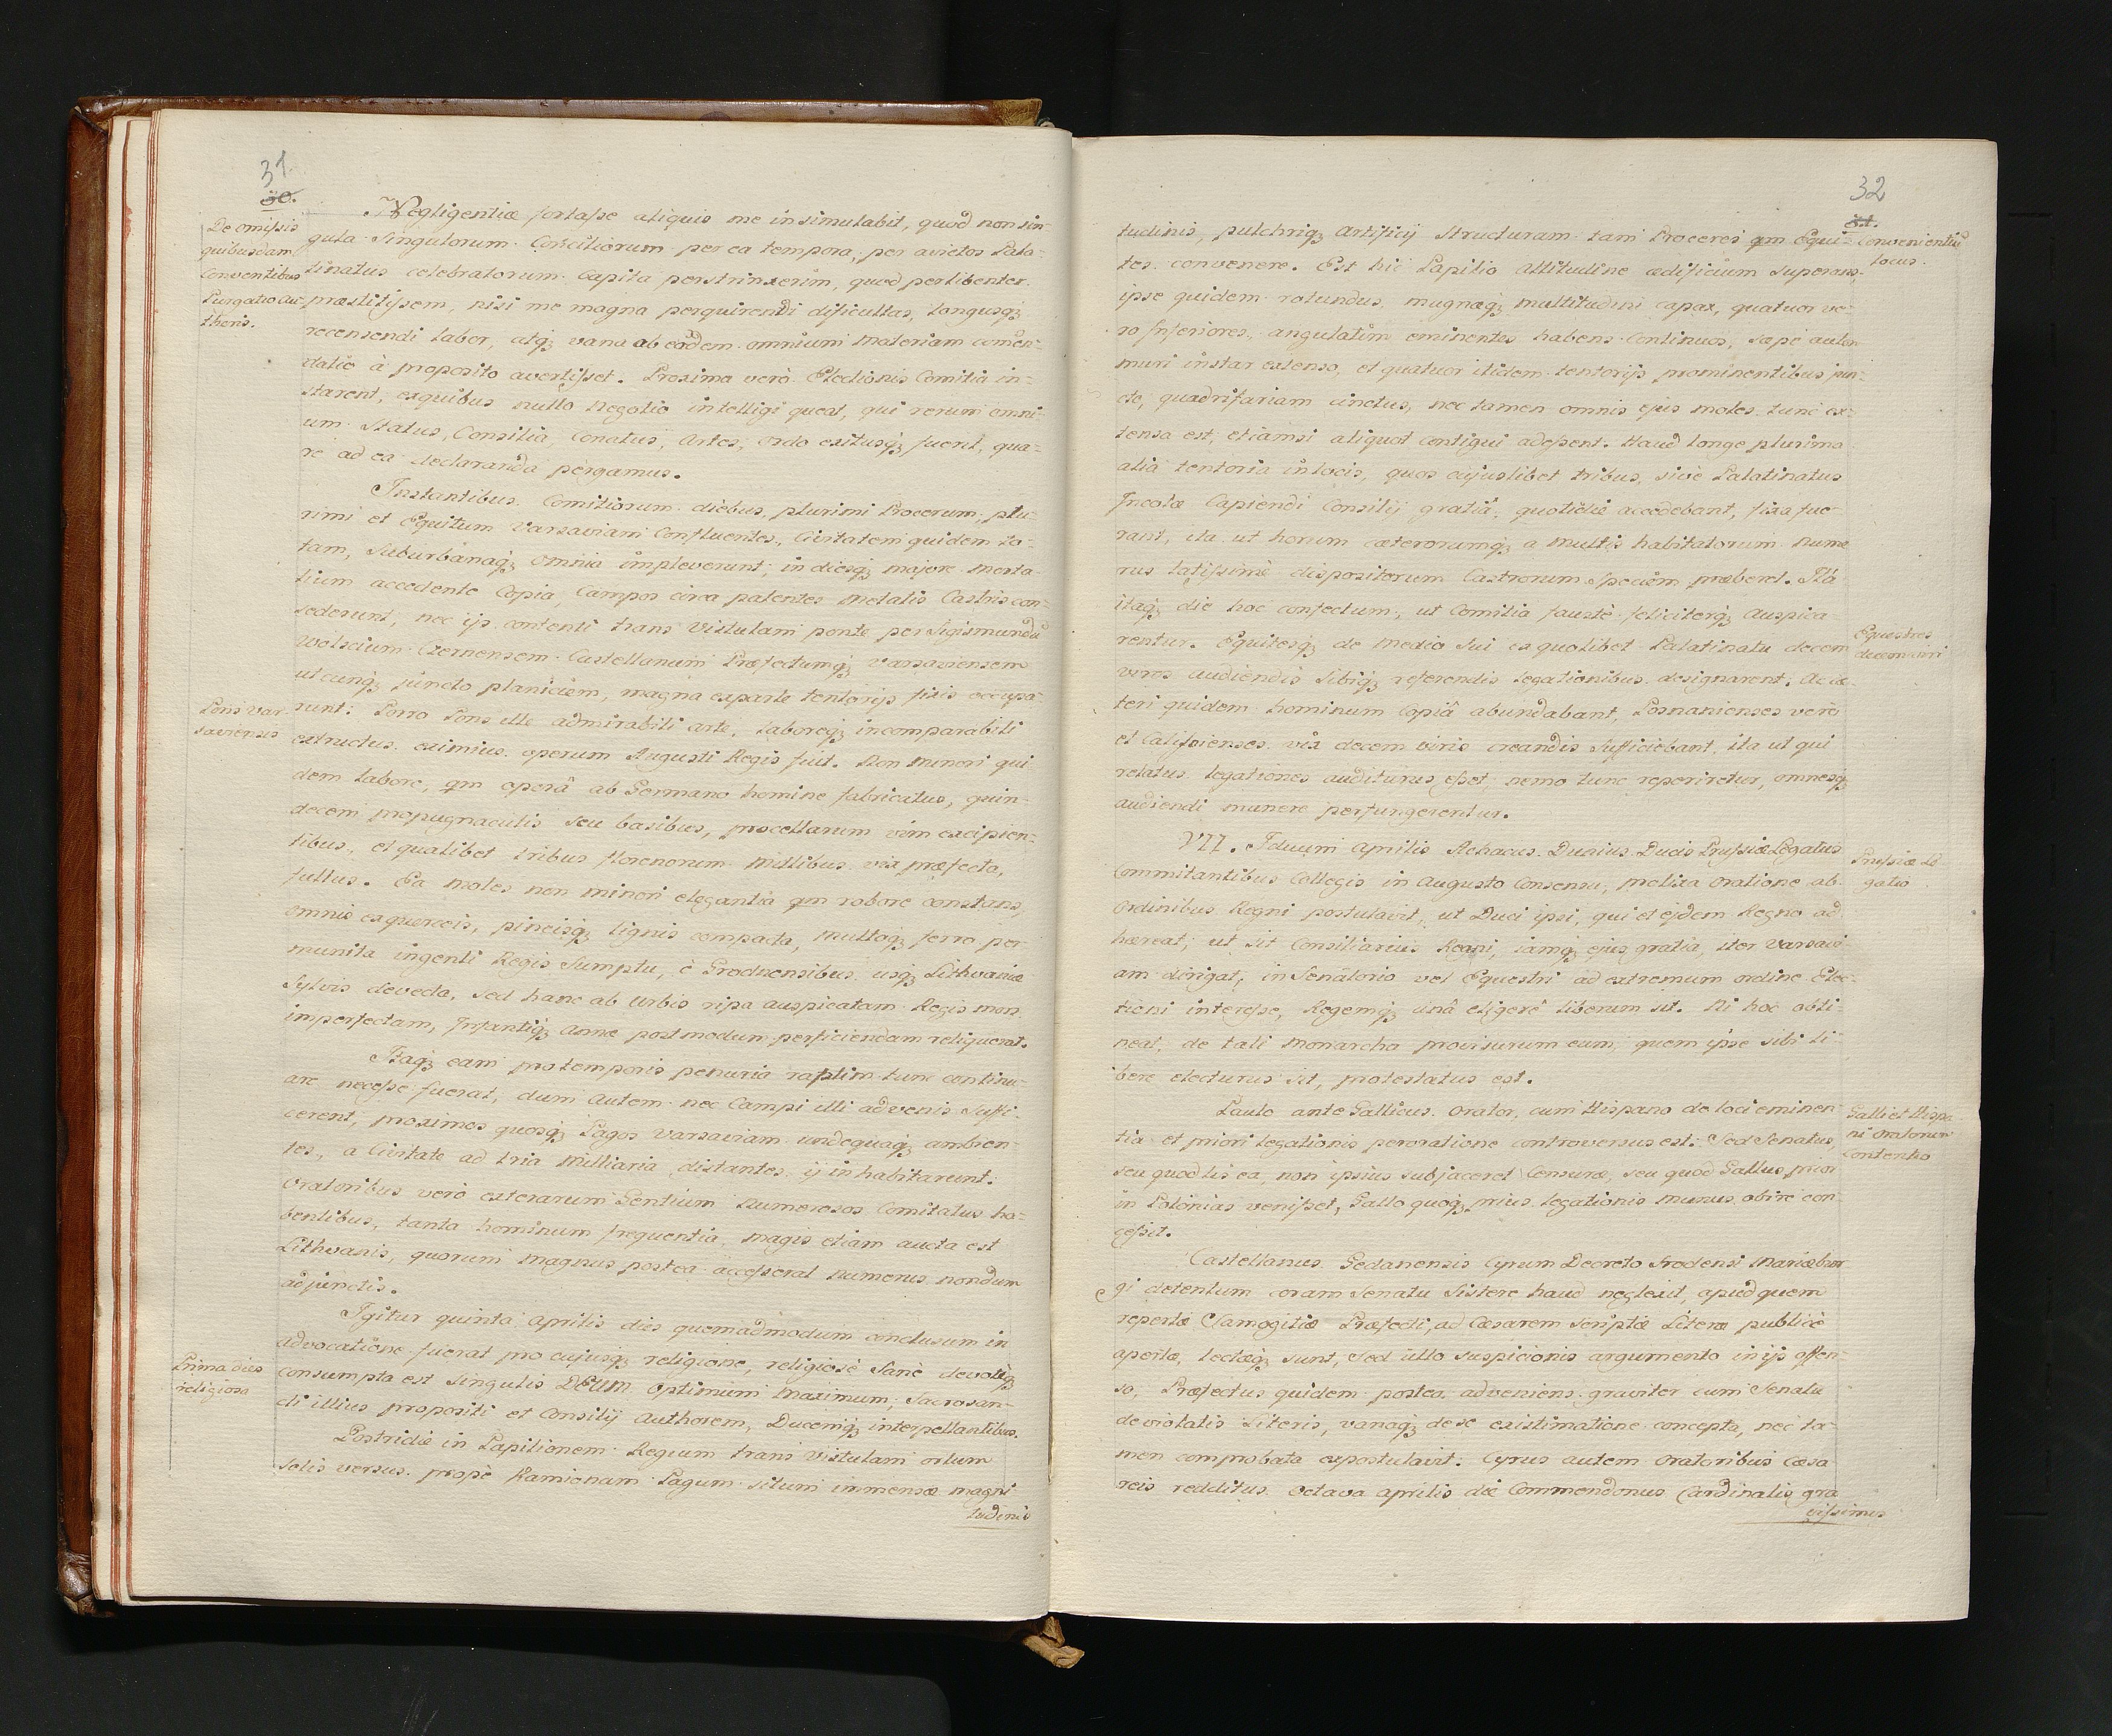 31.
30.
De omissis
quibusdam
Conventibus
Purgatio Au-
thoris.
Negligentiæ fortasse aliquis me insimulabit, quod non sin-
gula Singulorum Conciliorum per ea tempora, per cunctos Pala-
tinatus celebratorum Capita perstrinxerim, quod perlibenter
præstitissem, nisi me magna perquirendi dificultas, longusq3
recensendi labor, atq3 vana ab eadem omnium materiam comen-
datio à proposito avertisset. Proxima verò Electionis Comitia in-
starent, exquibus nullo negotio intelligi queat, qui rerum omni-
um Status, Consilia, Conatus, Artes, ordo exitusq3 fuerit, qua-
re ad ea declaranda pergamus.
Instantibus Comitiorum diebus, plurimi Procerum, plu-
rimi et Equitum Varsaviam Confluentes, Civitatem quidem to-
tam, Suburbanaq3 omnia impleverunt; in diesq3 majore morta-
lium accedente Copia, Campos circa patentes metatis Castris con-
sederunt, nec ijs contenti trans Vistulam ponte per Sigismundũ
Wolscium Czernensem Castellanum Præfectumq3 Varsaviensem
utcunq3 juncto planiciem, magna exparte tentorijs fixis occupa-
runt: Porro Pons ille admirabili arte, Laboreq3 incomparabili
Pons Var-
saviensis
extructus eximius operum Augusti Regis fuit. Non minori qui-
dem labore, qm operâ ab Germano homine fabricatus, quin-
decem propugnaculis seu basibus, procellarum vim excipien-
tibus, et qualibet tribus florenorum millibus vix præfecta,
fultus. Ea moles non minori elegantia qm robore constans,
omnis exquerceis, pineisq3 lignis compacta, multoq3 ferro per-
munita ingenti Regis Sumptu, è Grodnensibus usq3 Lithvaniæ
Sylvis devecta, sed hanc ab Urbis ripa auspicatam Regis mors
imperfectam, Infantiq3 Annæ postmodum perficiendam reliquerat.
Itaq3 eam pro temporis penuria raptim tunc continu-
are necesse fuerat, dum autem nec Campi illi advenis Suffi-
cerent, proximos quosq3 Pagos Varsaviam undequaq3 ambien-
tes, a Civitate ad tria Milliaria distantes ij inhabitarunt.
Oratoribus verò exterarum Gentium numerosos Comitatus ha-
bentibus, tanta hominum frequentia, magis etiam aucta est
Lithvanis, quorum magnus postea accesserat numerus nondum
adjunctis.
Igitur quinta Aprilis dies quemadmodum conclusum in
advocatione fuerat pro cujusq3 religione, religiosè Sanè devotèq3
Prima dies
religiosa
consumpta est Singulis DEUM Optimum Maximum, Sacrosan-
cti illius propositi et Consilij Authorem, Ducemq3 interpellantibus.
Postridie in Papilionem Regium trans Vistulam ortum
solis versus prope Kamionam Pagum situm immensæ magni-
tudinis
32
31.
tudinis, pulchriq3 Artificij Structuram tam Proceres qm Equi-
Convenientiũ
locus.
tes convenere. Est hic Papilio Altitudine ædificium Superans,
ipse quidem rotundus, magnæq3 multitudini capax, quatuor ve-
ro Inferiores, angulatim eminentes habens Continuos, sæpe autem
muri instar extenso, et quatuor itidem tentorijs prominentibus jun-
cto, quadrifariam cinctus, nec tamen omnis ejus moles tunc ex-
tensa est, etiamsi aliquot contigui adessent. Haud longe plurima
alia tentoria in locis, quos cujuslibet tribus, sivè Palatinatus
Incolæ Capiendi Consilij gratiâ, quotidie accedebant, fixa fue-
rant, ita ut horum cæterorumq3 a multis habitatorum nume-
rus latissimè dispositorum Castrorum Speciem præberet. Ita
itaq3 die hoc confectum, ut Comitia faustè feliciterq3 Auspica-
rentur. Equitesq3 de medio Sui ex quolibet Palatinatu decem
Equestres
decemviri
viros audiendis sibiq3 referendis Legationibus designarent; Ac cæ-
teri quidem hominum Copiâ abundabant, Posnanienses verò
et Calissienses vix decem viris creandis Sufficiebant, ita ut qui
relatus legationes auditurus esset nemo tunc reperiretur, omnesq3
audiendi munere perfungerentur.
VII. Iduum Aprilis Achacus Dunius Ducis Prussiæ Legatus
Prussiæ Le-
gatio
Commitantibus Collegis in Augusto Consensu, prolixa oratione ab
Ordinibus Regni postulavit, ut Duci ipsi, qui et ejdem Regno ad-
hæreat, ut sit Consiliarius Regni, jamq3 ejus gratia, iter Varsavi-
am dirigat, in Senatorio vel Equestri ad extremum ordine Elec-
tioni interesse, Regemq3 unâ eligere liberum sit. Ni hoc obti-
neat, de tali Monarcha provisurum eum, quem ipse sibi li-
bere electurus sit, protestatus est.
Paulo ante Gallicus Orator, cum Hispano de loci eminen-
Galli et Hispa-
ni Oratorum
Contentio
tia et priori legationis peroratione controversus est: Sed Senatus,
seu quod lis ea, non ipsius subjaceret Censuræ, seu quod Gallus prior
in Polonias venisset, Gallo quoq3 prius legationis munus obire con-
cessit.
Castellanus Gedanensis Cyrum Decreto Srodensi Mariæbur-
gi detentum coram Senatu Sistere haud neglexit, apud quem
repertæ Samogitiæ Præfecti, ad Cæsarem scriptæ Literæ publicè
apertæ, lectæq3 sunt, Sed ullo suspicionis argumento in ijs offen-
so, Præfectus quidem postea adveniens graviter cum Senatu
de violatis Literis, vanaq3 de se existimatione concepta, nec ta-
men comprobata expostulavit: Cyrus autem Oratoribus Cæsa-
reis redditus. Octava Aprilis die Commendonus Cardinalis gra-
vissimus